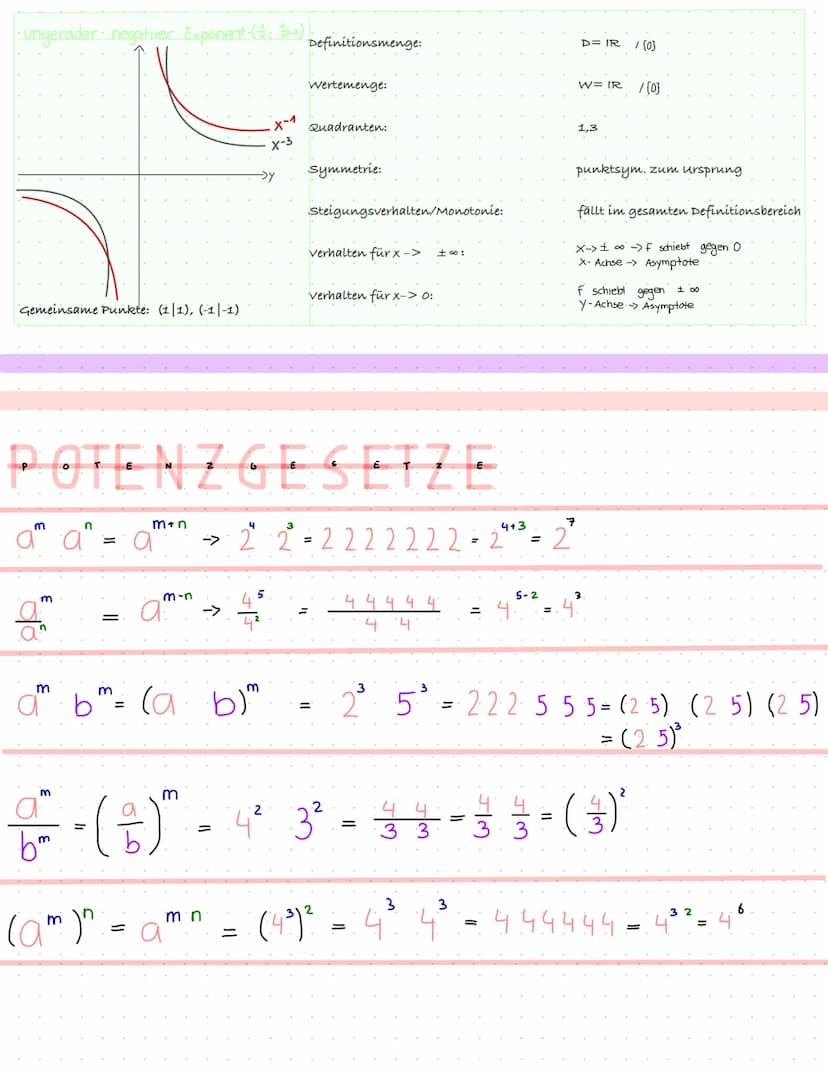 ungerader negativer Exponent
Definitionsmenge: D= IR / {0}
Wertemenge: W= IR / {0}
x⁻¹
Quadranten: 1,3
x⁻³
Symmetrie: punktsym. zum Ursprung
y
Steigungsverhalten/Monotonie: fällt im gesamten Definitionsbereich
Verhalten für x -> ± ∞: X-> ± ∞ -> F schiebt gegen 0
X- Achse -> Asymptote
Verhalten für x-> 0: F schiebt gegen ± ∞
Y- Achse -> Asymptote
Gemeinsame Punkte: (1|1), (-1|-1)
POTENZGESETZE
POTENZGESETZE
aᵐ aⁿ = aᵐ⁺ⁿ -> 2⁴ 2³ = 2 2 2 2 2 2 2 = 2⁴⁺³ = 2⁷
aᵐ/aⁿ = aᵐ⁻ⁿ -> 4⁵/4² = 4 4 4 4 4/4 4 = 4⁵⁻² = 4³
aᵐ bᵐ = (a b)ᵐ = 2³ 5³ = 2 2 2 5 5 5 = (2 5) (2 5) (2 5)
= (2 5)³
aᵐ/bᵐ = (a/b)ᵐ = 4² 3² = 4 4/3 3 = 4/3 4/3 = (4/3)²
(aᵐ)ⁿ = aᵐ ⁿ = (4³)² = 4³ 4³ = 4 4 4 4 4 4 = 4³ ² = 4⁶